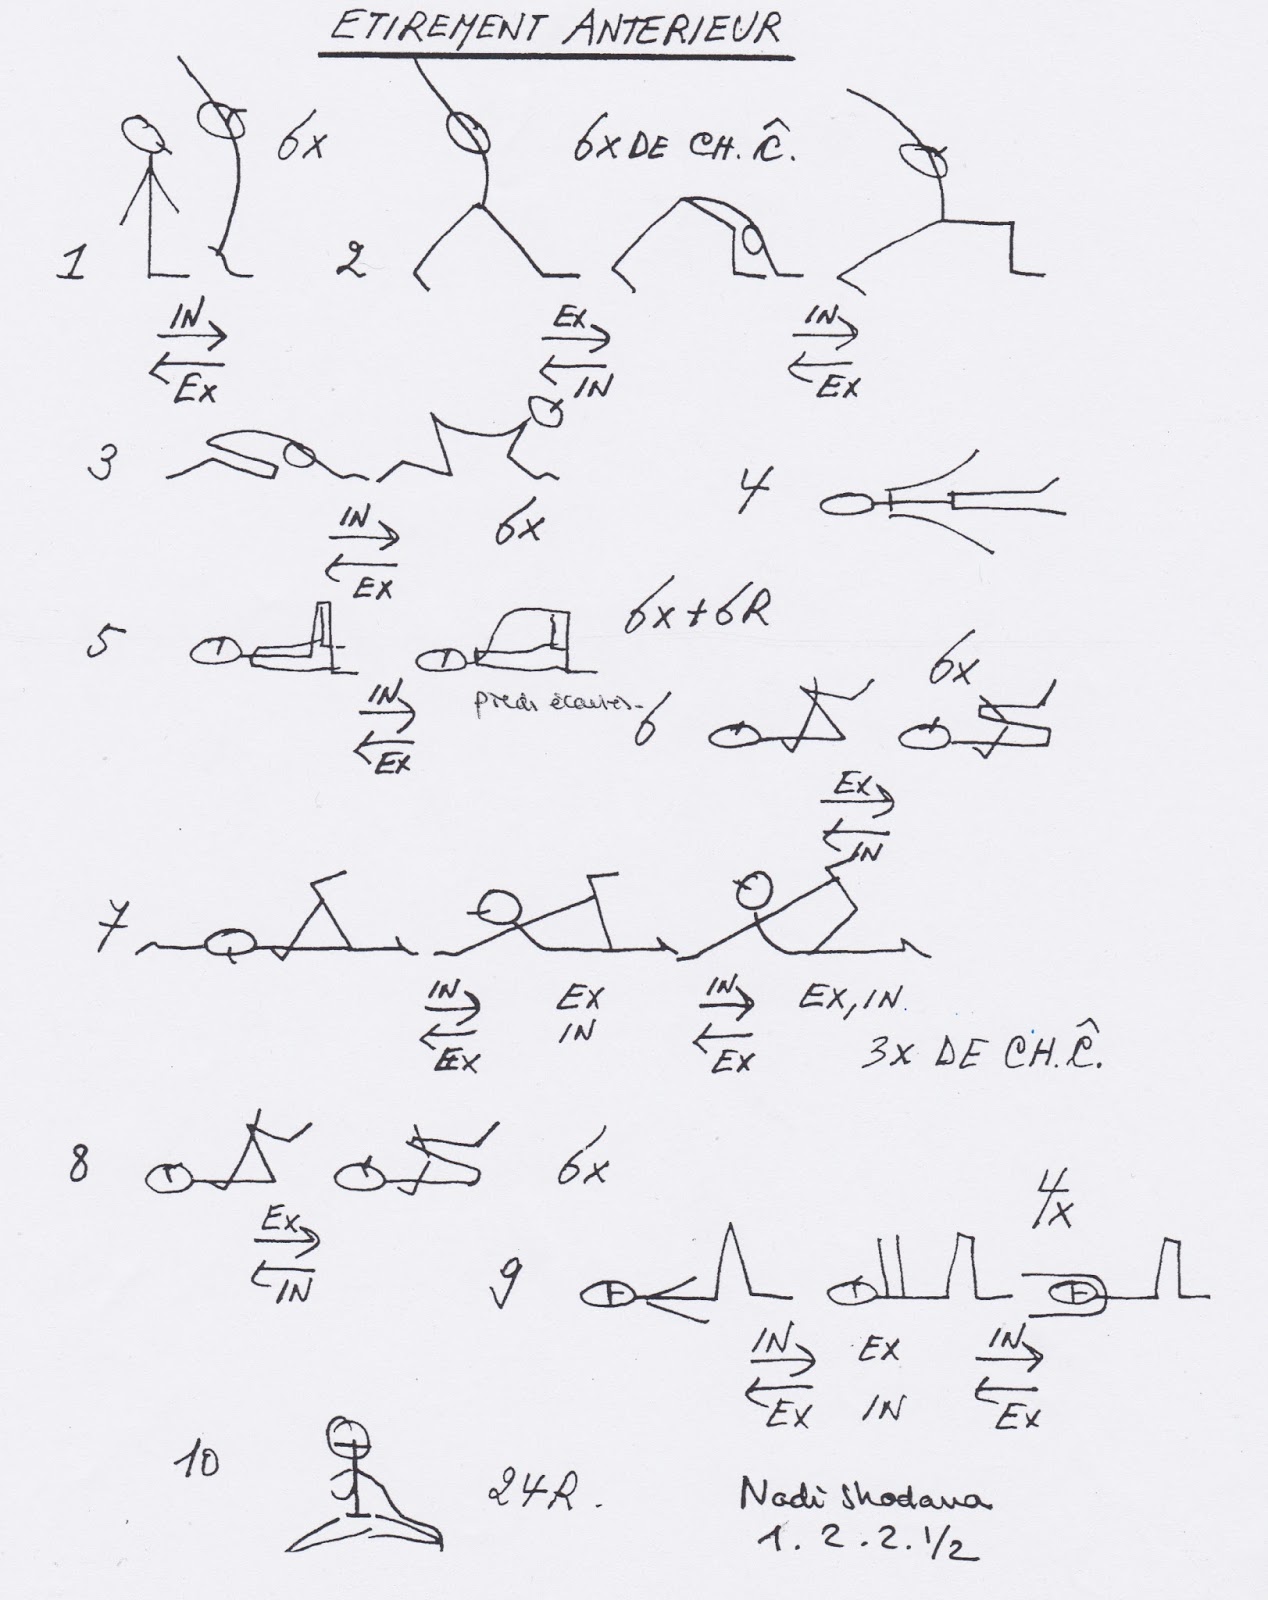 ETIREMENT ANTERIEUR
6x
6x DE CH. Ĉ.
1
2
IN
Ex
Ex
IN
IN
Ex
3
4
IN
EX
6x
5
6x + 6R
IN
Ex
pieds écartés
6
6x
Ex
IN
7
IN
Ex
EX
IN
IN
Ex
EX, IN.
3x DE CH. Ĉ.
8
6x
Ex
IN
4x
9
IN
Ex
EX
IN
IN
Ex
10
24R.
Nadi Shodana
1. 2. 2. 1/2